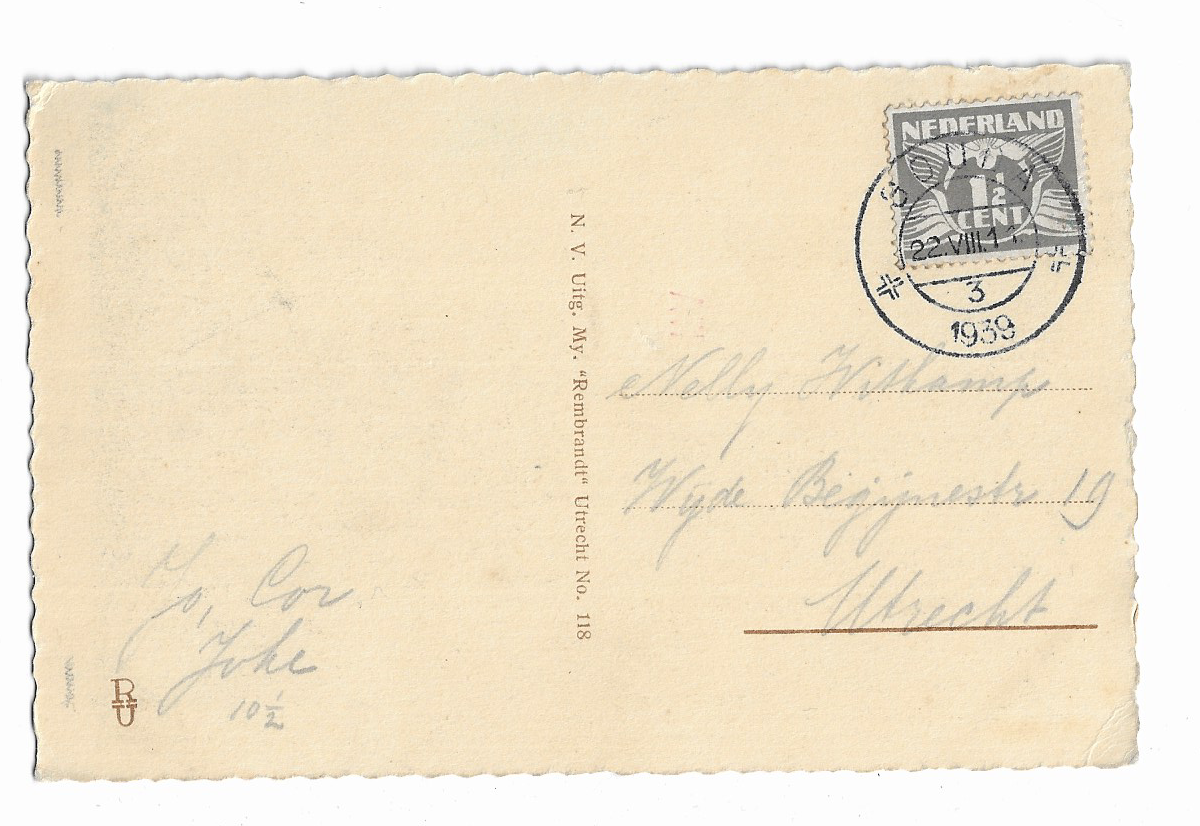 NEDERLAND
1 1/2
CENT
GOUDA
22.VIII.1
3
1939
N. V. Uitg. My. “Rembrandt“ Utrecht No. 118
Nelly Witkamp
Wyde Begijnestr 19
Utrecht
Jo, Cor
Joke
10 1/2
RU